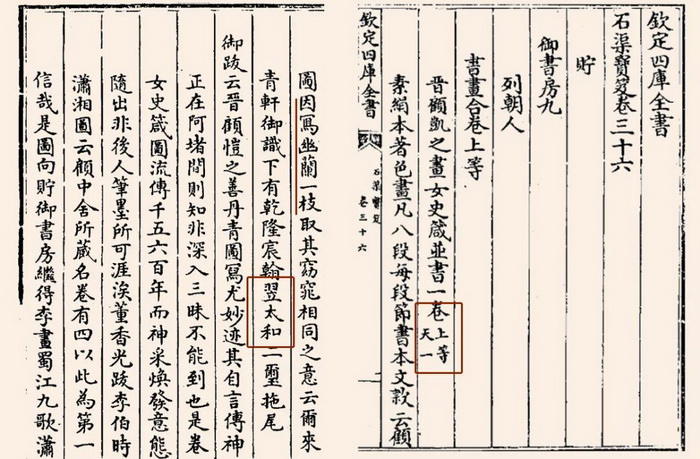 欽定四庫全書
石渠寶笈卷三十六
貯
御書房九
列朝人
書畫合卷上等
晉顧凱之畫女史箴並書一卷上等天一
素絹本著色畫凡八段每段節書本文款云顧
欽定四庫全書
石渠寶笈
卷三十六
圖因寫幽蘭一枝取其窈窕相同之意云爾來
青軒御識下有乾隆宸翰翌太和二璽拖尾
御跋云晉顧愷之善丹青圖寫尤妙迹其自言傳神
正在阿堵間則知非深入三昧不能到也是卷
女史箴圖流傳千五六百年而神采煥發意態
隨出非後人筆墨所可涯涘董香光跋李伯時
瀟湘圖云顧中舍所藏名卷有四以此為第一
信哉是圖向貯御書房繼得李畫蜀江九歌瀟